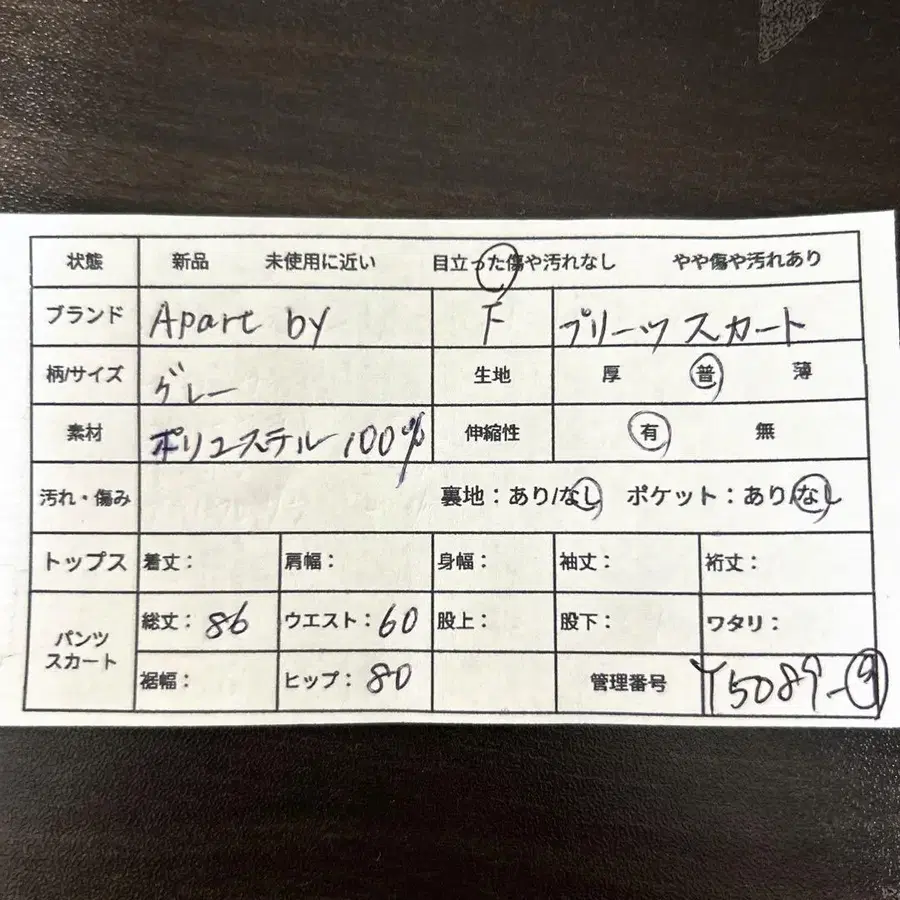 状態 新品 未使用に近い 目立った傷や汚れなし やや傷や汚れあり
ブランド Apart by F プリーツスカート
柄/サイズ グレー 生地 厚 普 薄
素材 ポリエステル 100% 伸縮性 有 無
汚れ・傷み 裏地：あり/なし ポケット：あり/なし
トップス 着丈： 肩幅： 身幅： 袖丈： 裄丈：
パンツ スカート 総丈：86 ウエスト：60 股上： 股下： ワタリ：
裾幅： ヒップ：80 管理番号 Y5089-9